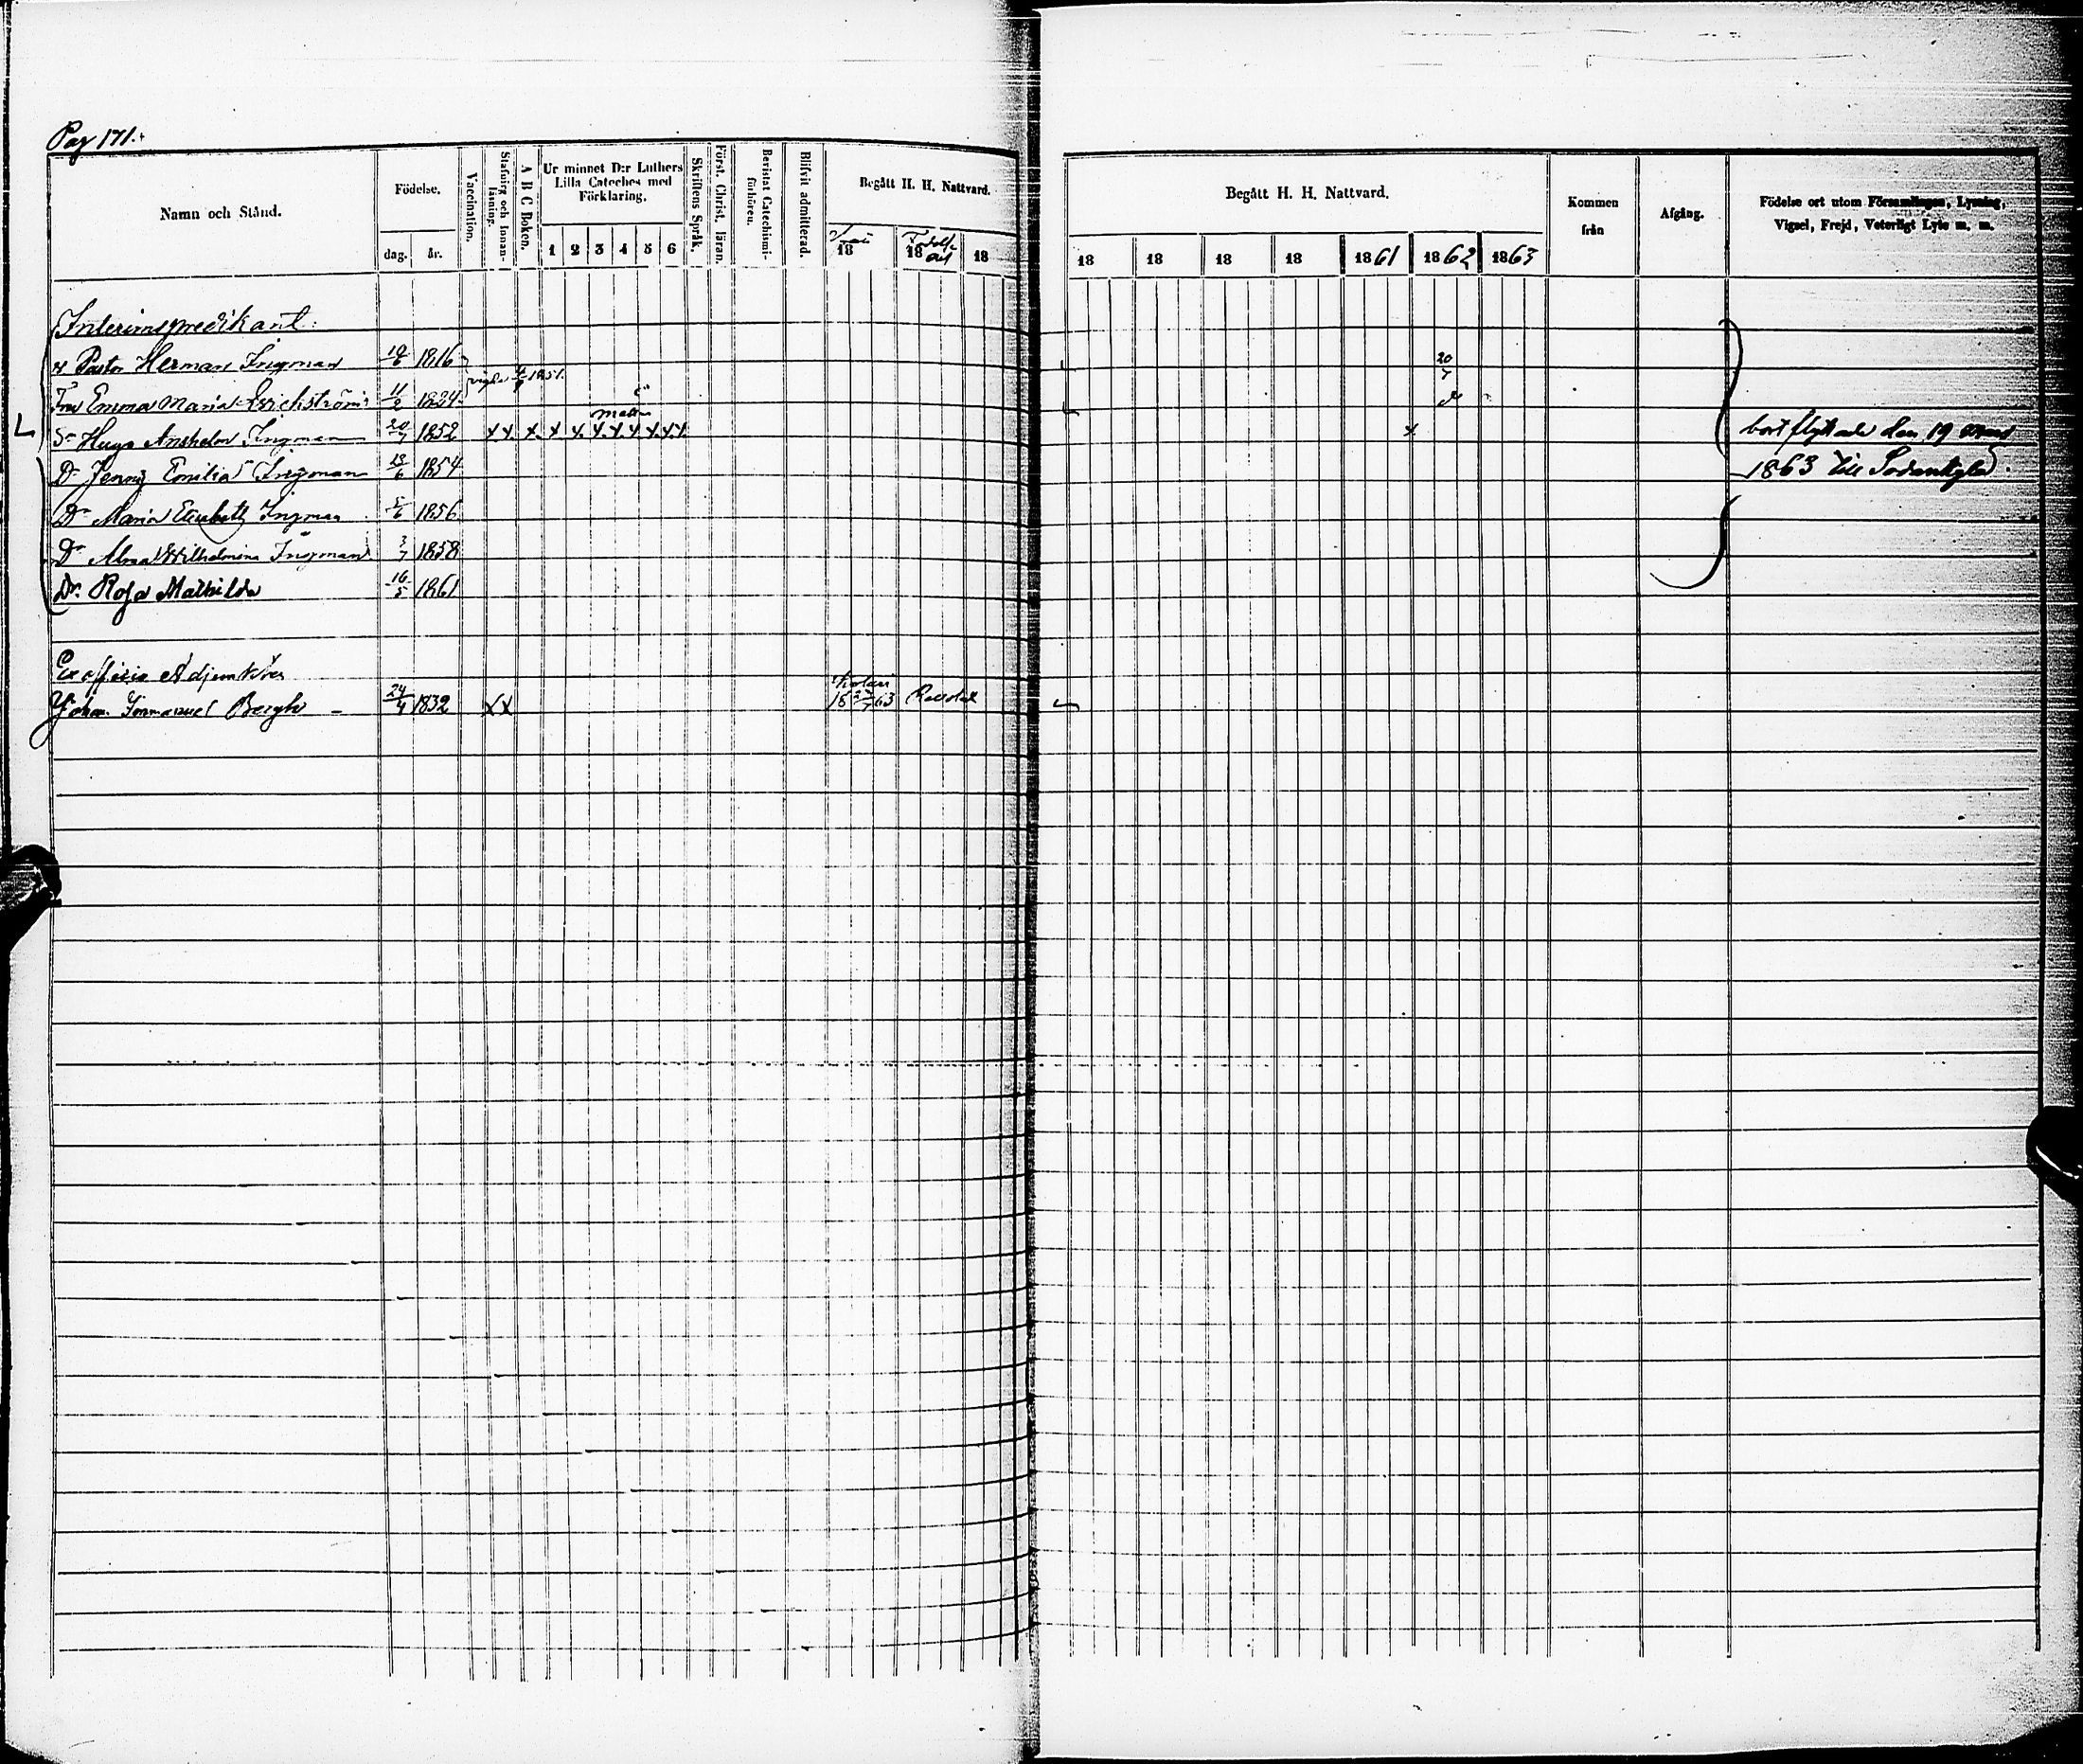 Pag 171.
Namn och Stånd.
Födelse.
dag. år.
Vaccination.
Stafning och Innan-
läsning.
A B C Boken.
Ur minnet D:r Luthers
Lilla Cateches med
Förklaring.
1 2 3 4 5 6
Skriftens Språk.
Först. Christ. läran.
Bevistat Catechismi-
förhören.
Blifvit admitterad.
Begått H. H. Nattvard.
18 18 18
Begått H. H. Nattvard.
18 18 18 18 1861 1862 1863
Kommen
från
Afgång.
Födelse ort utom Församlingen, Lysning,
Vigsel, Frejd, Veterligt Lyte m. m.
Interimspredikant:
Pastor Herman Ingman 1816 20/7
vigde 1851.
Fru Emma Maria 11/2 1824
S. Hugo Anshelm Ingman 20/7 1852 x x x x x x x x x x x bortflyttade den 19
D. Jenny Emilia Ingman 13/6 1854 1863 till Sodankylä.
D. Maria Elisabeth Ingman 5/6 1856
D. Alma Wilhelmina Ingman 3/7 1858
D. Rosa Mathilda 16/5 1861
Ex officio Adjunkten
Johan Immanuel Bergh - 24/4 1832 x x